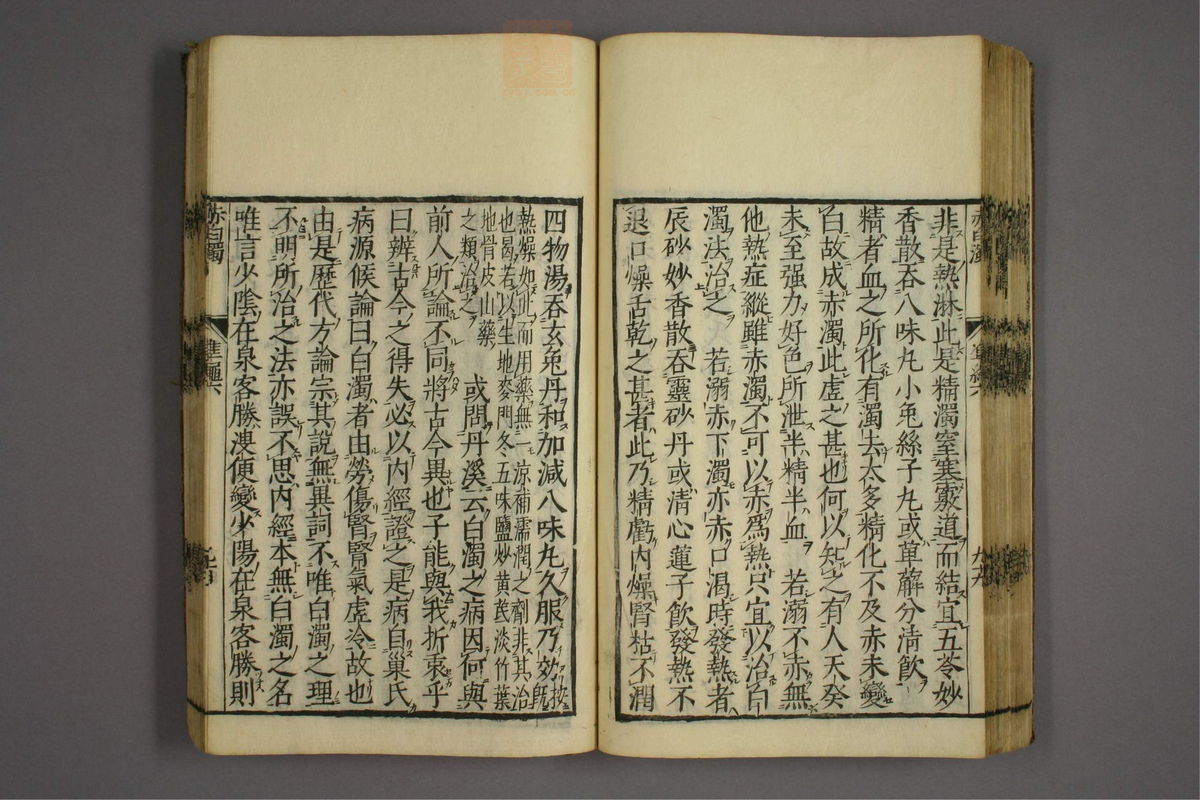 非是熱淋此是精濁窒塞竅道而結宜五苓妙
香散吞八味丸小兔絲子丸或萆薢分清飲
精者血之所化有濁去太多精化不及赤未變
白故成赤濁此虛之甚也何以知之有人天癸
未至强力好色所泄半精半血 若溺不赤無
他熱症縱雖赤濁不可以赤爲熱只宜以治白
濁法治之 若溺赤下濁亦赤口渴時發熱者
辰砂妙香散吞靈砂丹或清心蓮子飲發熱不
退口燥舌乾之甚者此乃精虧內燥腎枯不潤
四物湯吞玄兔丹和加減八味丸久服乃效按既
熱燥如此而用藥無一凉補濡潤之劑非其治
也曷若以生地麥門冬五味鹽炒黄芪淡竹葉
地骨皮山藥
之類治之 或問丹溪云白濁之病因何與
前人所論不同將古今異也子能與我折衷乎
曰辨古今之得失必以内經證之是病自巢氏
病源候論曰白濁者由勞傷腎腎氣虛冷故也
由是歷代方論宗其說無異詞不唯白濁之理
不明所治之法亦誤不思内經本無白濁之名
唯言少陰在泉客勝溲便變少陽在泉客勝則
赤白濁